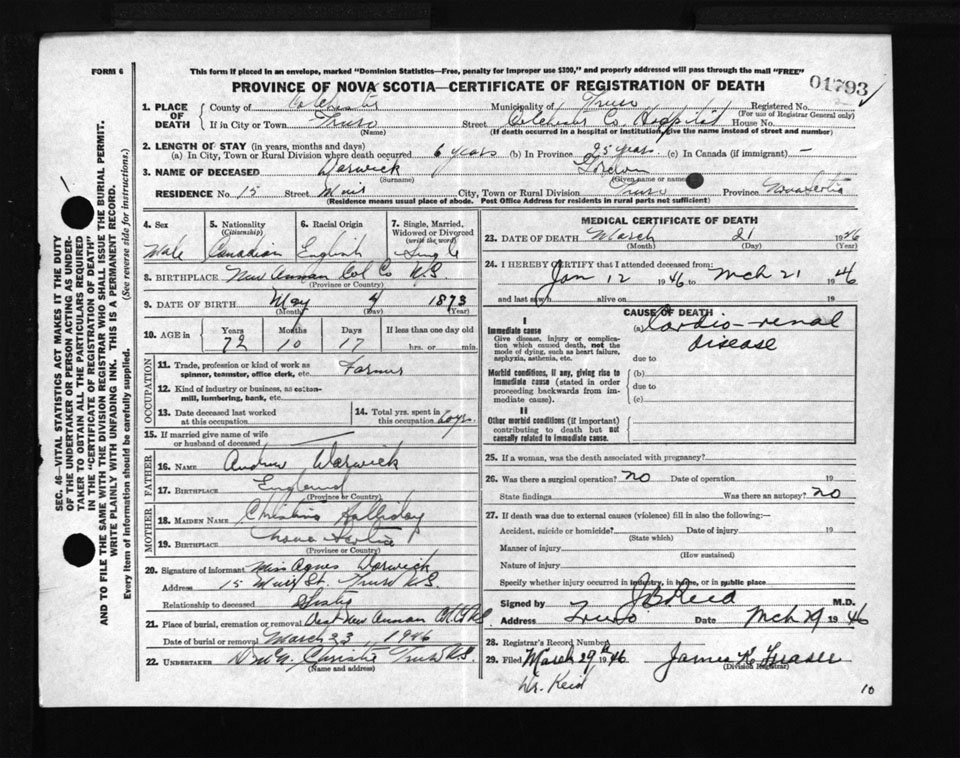 FORM 6
This form if placed in an envelope, marked "Dominion Statistics—Free, penalty for improper use $300," and properly addressed will pass through the mail "FREE"
PROVINCE OF NOVA SCOTIA—CERTIFICATE OF REGISTRATION OF DEATH
01793
1. PLACE OF DEATH
County of Colchester Municipality of Truro Registered No.
(For use of Registrar General only)
If in City or Town Truro Street Colchester Co. Hospital House No.
(Name) (If death occurred in a hospital or institution, give the name instead of street and number)
2. LENGTH OF STAY (in years, months and days)
(a) In City, Town or Rural Division where death occurred 6 years (b) In Province 25 years (c) In Canada (if immigrant) —
3. NAME OF DECEASED Warwick Gordon
(Surname) (Given name or names)
RESIDENCE No. 15 Street Muir City, Town or Rural Division Truro Province Nova Scotia
(Residence means usual place of abode. Post Office Address for residents in rural parts not sufficient)
4. Sex Male
5. Nationality (Citizenship) Canadian
6. Racial Origin English
7. Single, Married, Widowed or Divorced (write the word) Single
8. BIRTHPLACE New Annan Col Co N.S.
(Province or Country)
9. DATE OF BIRTH May 4 1873
(Month) (Day) (Year)
10. AGE in Years Months Days If less than one day old
72 10 17 hrs. or min.
OCCUPATION
11. Trade, profession or kind of work as spinner, teamster, office clerk, etc. Farmer
12. Kind of industry or business, as cotton-mill, lumbering, bank, etc.
13. Date deceased last worked at this occupation
14. Total yrs. spent in this occupation 60 yrs.
15. If married give name of wife or husband of deceased
FATHER
16. NAME Andrew Warwick
17. BIRTHPLACE England
(Province or Country)
MOTHER
18. MAIDEN NAME Christina Halliday
19. BIRTHPLACE Nova Scotia
(Province or Country)
20. Signature of informant Miss Agnes Warwick
Address 15 Muir St. Truro N.S.
Relationship to deceased Sister
21. Place of burial, cremation or removal New Annan
Date of burial or removal March 23, 1946
22. UNDERTAKER Christie Truro N.S.
(Name and address)
MEDICAL CERTIFICATE OF DEATH
23. DATE OF DEATH March 21 1946
(Month) (Day) (Year)
24. I HEREBY CERTIFY that I attended deceased from:
Jan 12 1946 to Mch 21 1946
and last saw h alive on 19
CAUSE OF DEATH
I
Immediate cause
Give disease, injury or complication which caused death, not the mode of dying, such as heart failure, asphyxia, asthenia, etc.
(a) Cardio-renal disease
due to
Morbid conditions, if any, giving rise to immediate cause (stated in order proceeding backwards from immediate cause).
(b)
due to
(c)
II
Other morbid conditions (if important) contributing to death but not causally related to immediate cause.
25. If a woman, was the death associated with pregnancy?
26. Was there a surgical operation? no Date of operation 19
State findings Was there an autopsy? no
27. If death was due to external causes (violence) fill in also the following:—
Accident, suicide or homicide? Date of injury 19
(State which)
Manner of injury
(How sustained)
Nature of injury
Specify whether injury occurred in industry, in home, or in public place
Signed by J B Reid M.D.
Address Truro Date Mch 29 1946
28. Registrar's Record Number
29. Filed March 29th 1946 James K. Fraser
(Division Registrar)
Dr. Reid
10
SEC. 46—VITAL STATISTICS ACT MAKES IT THE DUTY
OF THE UNDERTAKER OR PERSON ACTING AS UNDER-
TAKER TO OBTAIN ALL THE PARTICULARS REQUIRED
IN THE "CERTIFICATE OF REGISTRATION OF DEATH"
AND TO FILE THE SAME WITH THE DIVISION REGISTRAR WHO SHALL ISSUE THE BURIAL PERMIT.
WRITE PLAINLY WITH UNFADING INK. THIS IS A PERMANENT RECORD.
Every item of information should be carefully supplied. (See reverse side for instructions).